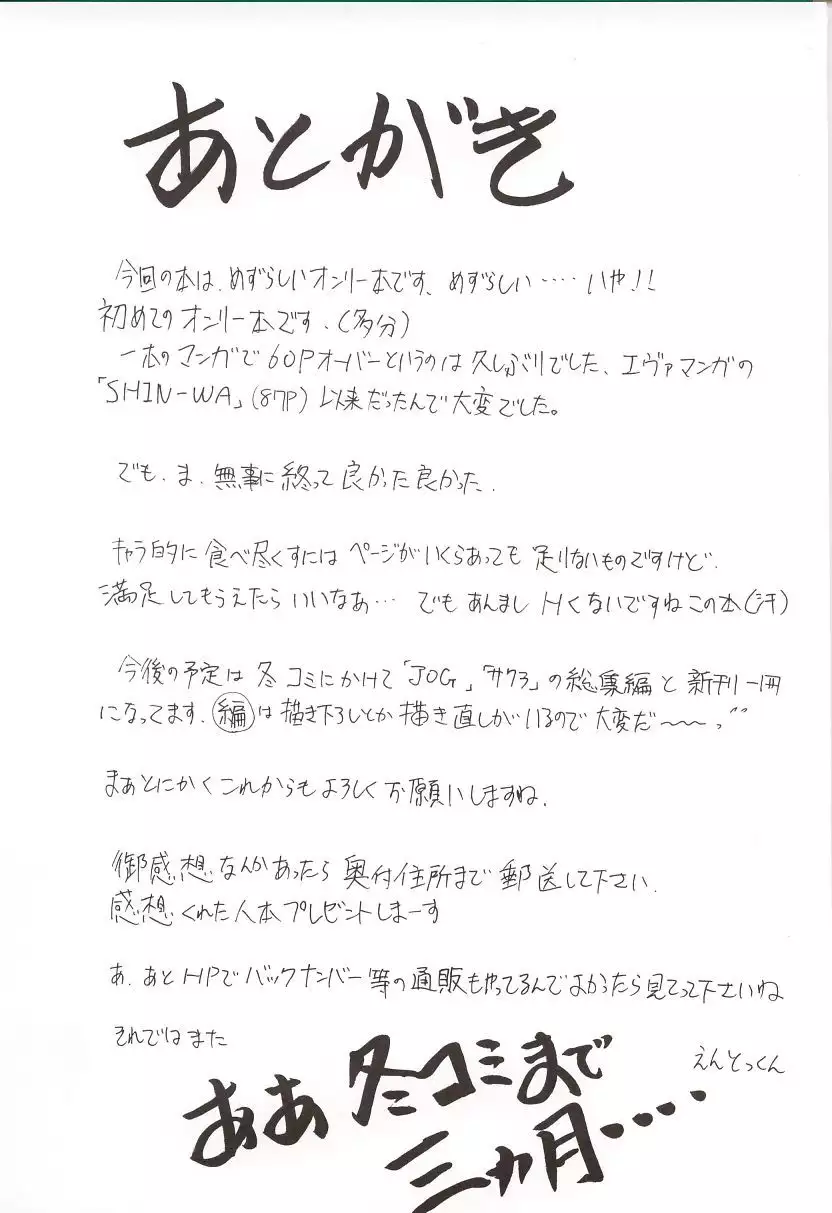 あとがき
今回の本は、めずらしいオンリー本です、めずらしい‥‥いや!!
初めてのオンリー本です、(多分)
一本のマンガで60Pオーバーというのは久しぶりでした、エヴァマンガの
「SHIN-WA」(87P)以来だったんで大変でした。
でも、ま、無事に終って良かった良かった、
キャラ的に食べ尽くすにはページがいくらあっても足りないものですけど、
満足してもらえたらいいなあ… でもあんましHくないですねこの本(汗)
今後の予定は冬コミにかけて「JOG」「サクラ」の総集編と新刊一冊
になってます、編は描き下ろしとか描き直しがいるので大変だ〜〜っ
まあとにかくこれからもよろしくお願いしますね、
御感想なんかあったら奥付住所まで郵送して下さい、
感想くれた人本プレゼントしまーす
あ、あとHPでバックナンバー等の通販もやってるんでよかったら見てって下さいね
それではまた
えんとっくん
ああ冬コミまで
三ヵ月‥‥